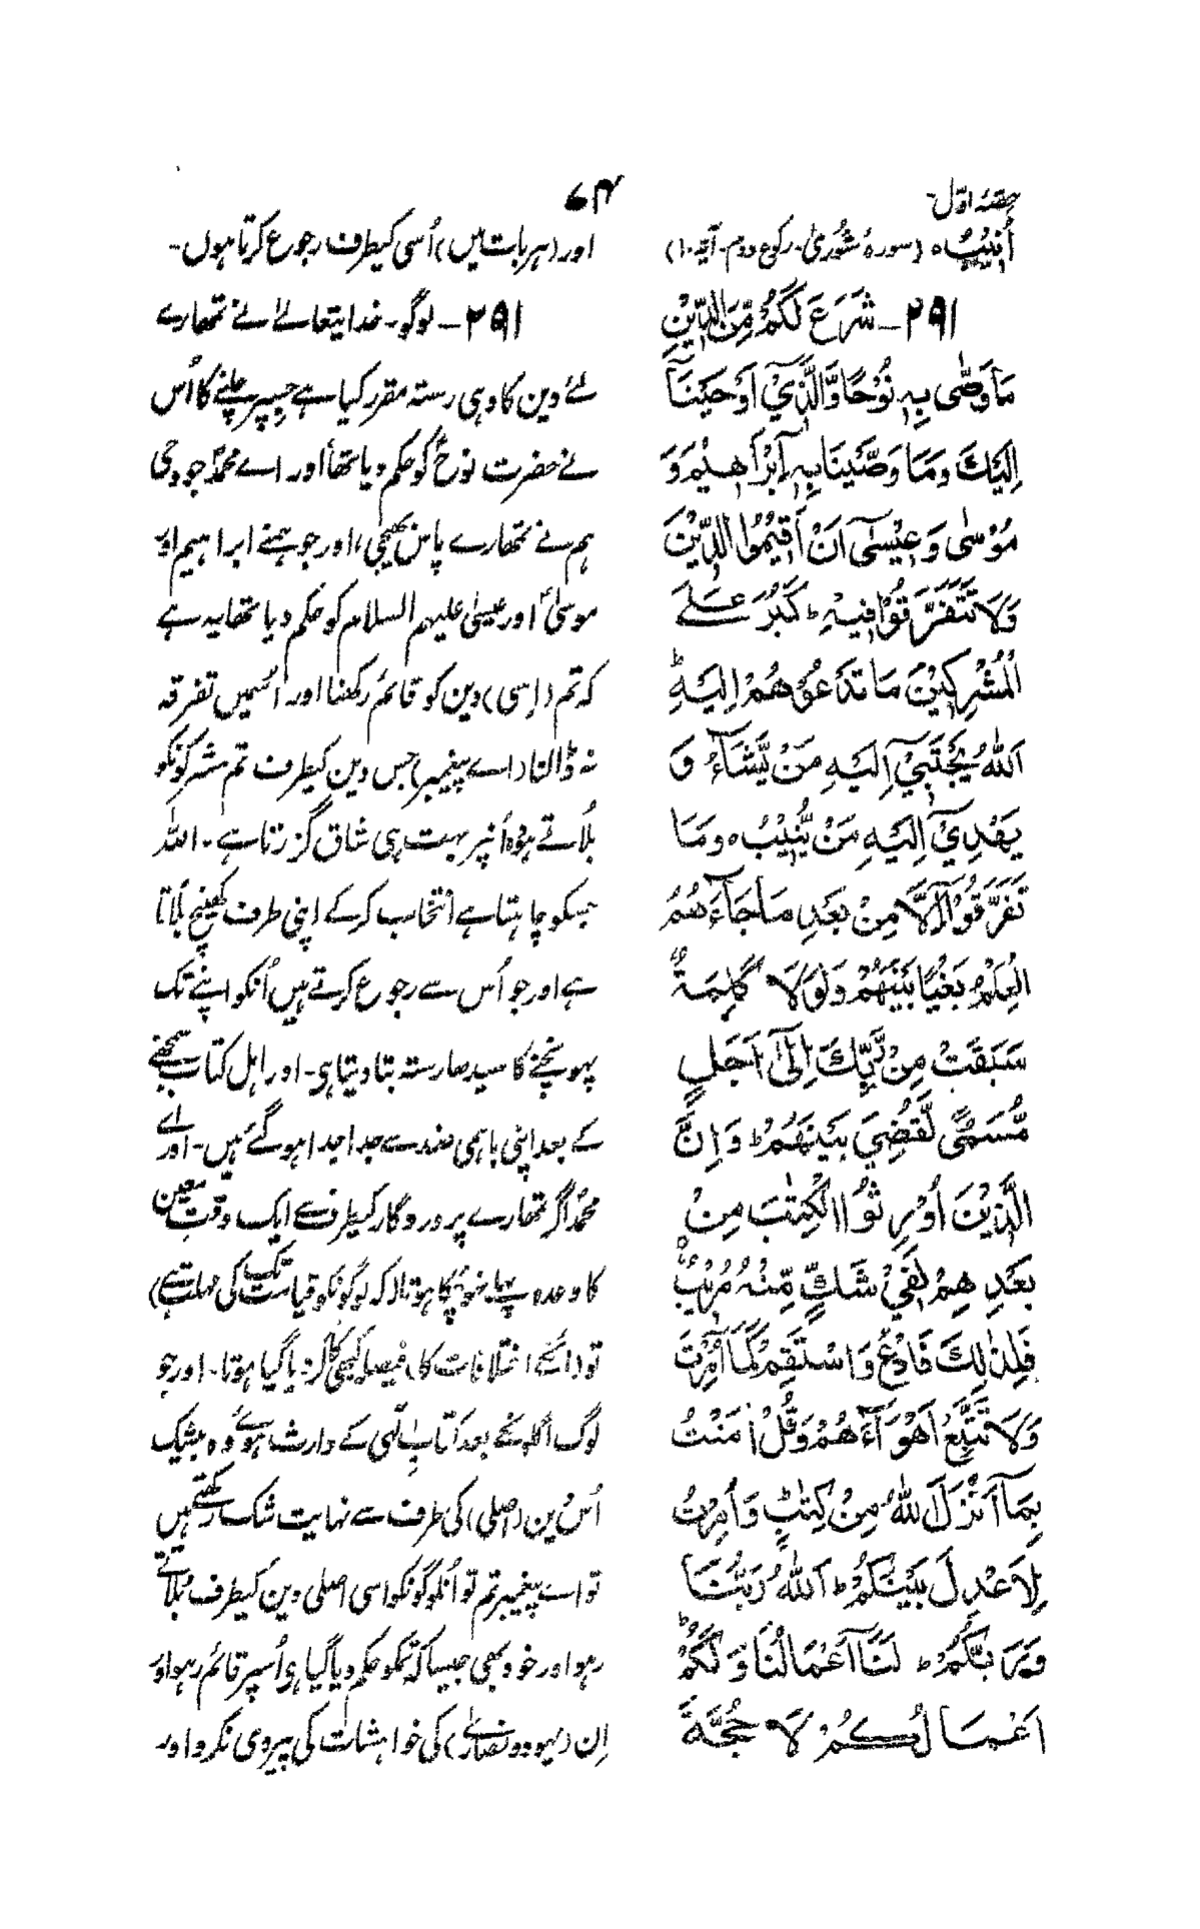 حصہ اوّل
۷۴
اُنِيْبُ ہ (سورۂ شُوریٰ۔ رکوع دوم۔ آیۃ ۱۰)
۲۹۱ ـ شَرَعَ لَكُمْ مِّنَ الدِّيْنِ
مَا وَصّٰى بِہٖ نُوْحًا وَّالَّذِيْٓ اَوْحَيْنَآ
اِلَيْكَ وَمَا وَصَّيْنَا بِہٖٓ اِبْرٰهِيْمَ وَ
مُوْسٰى وَعِيْسٰٓى اَنْ اَقِيْمُوا الدِّيْنَ
وَلَا تَتَفَرَّقُوْا فِيْہِ ؕ كَبُرَ عَلَے
الْمُشْرِكِيْنَ مَا تَدْعُوْهُمْ اِلَيْہِ ؕ
اَللّٰهُ يَجْتَبِيْٓ اِلَيْہِ مَنْ يَّشَآءُ وَ
يَهْدِيْٓ اِلَيْہِ مَنْ يُّنِيْبُ ہ وَمَا
تَفَرَّقُوْٓا اِلَّا مِنْ بَعْدِ مَا جَآءَهُمُ
الْعِلْمُ بَغْيًا بَيْنَهُمْ وَلَوْلَا كَلِمَۃٌ
سَبَقَتْ مِنْ رَّبِّكَ اِلٰٓى اَجَلٍ
مُّسَمًّى لَّقُضِيَ بَيْنَهُمْ ؕ وَاِنَّ
الَّذِيْنَ اُوْرِثُوا الْكِتٰبَ مِنْ
بَعْدِهِمْ لَفِيْ شَكٍّ مِّنْہُ مُرِيْبٍ
فَلِذٰلِكَ فَادْعُ وَاسْتَقِمْ كَمَآ اُمِرْتَ
وَلَا تَتَّبِعْ اَهْوَآءَهُمْ وَقُلْ اٰمَنْتُ
بِمَآ اَنْزَلَ اللّٰهُ مِنْ كِتٰبٍ وَاُمِرْتُ
لِاَعْدِلَ بَيْنَكُمْ ؕ اَللّٰهُ رَبُّنَا
وَرَبُّكُمْ ؕ لَنَآ اَعْمَالُنَا وَلَكُمْ
اَعْمَالُكُمْ لَا حُجَّۃَ
اور (ہر بات میں) اُسی کیطرف رجوع کرتا ہوں۔
۲۹۱ ـ لوگو۔ خدایتعالےٰ نے تمھارے
لئے دین کا وہی رستہ مقرر کیا ہے جسپر چلنے کا اُس
نے حضرت نوحؑ کو حکم دیا تھا اور اے محمدؐ جو وحی
ہم نے تمھارے پاس بھیجی، اور جو ہمنے ابراہیم اور
موسیٰؑ اور عیسیٰ علیہم السلام کو حکم دیا تھا یہ ہے
کہ تم (اِسی) دین کو قائم رکھنا اور اُسمیں تفرقہ
نہ ڈالنا (اے پیغمبر) جس دین کیطرف تم مشرکونکو
بُلاتے ہو وہ اُنپر بہت ہی شاق گزرتا ہے۔ اللہ
جسکو چاہتا ہے انتخاب کرکے اپنی طرف کھینچ بُلاتا
ہے اور جو اُس سے رجوع کرتے ہیں اُنکو اپنے تک
پہونچنے کا سیدھا رستہ بتا دیتا ہی۔ اور اہل کتاب سمجھنے
کے بعد اپنی باہمی ضد سے جدا جدا ہوگئے ہیں۔ اور اے
محمدؐ اگر تمھارے پروردگار کیطرف سے ایک وقت معین
کا وعدہ پہلے نہو چکا ہوتا (کہ لوگونکو قیامت تک کی مہلت ہے)
تو (انکے اختلافات کا) فیصلہ کبھی کا کر دیا گیا ہوتا۔ اور جو
لوگ اگلونکے بعد کتابِ الٰہی کے وارث ہوئے وہ بیشک
اُس دین (اصلی) کی طرف سے نہایت شک رکھتے ہیں
تو اے پیغمبر تم تو اُنلوگونکو اسی اصلی دین کیطرف بُلاتے
رہو اور خود بھی جیسا کہ تمکو حکم دیا گیا ہی اُسپر قائم رہو اور
اِن (یہود و نصاریٰ) کی خواہشات کی پیروی نکرو اور